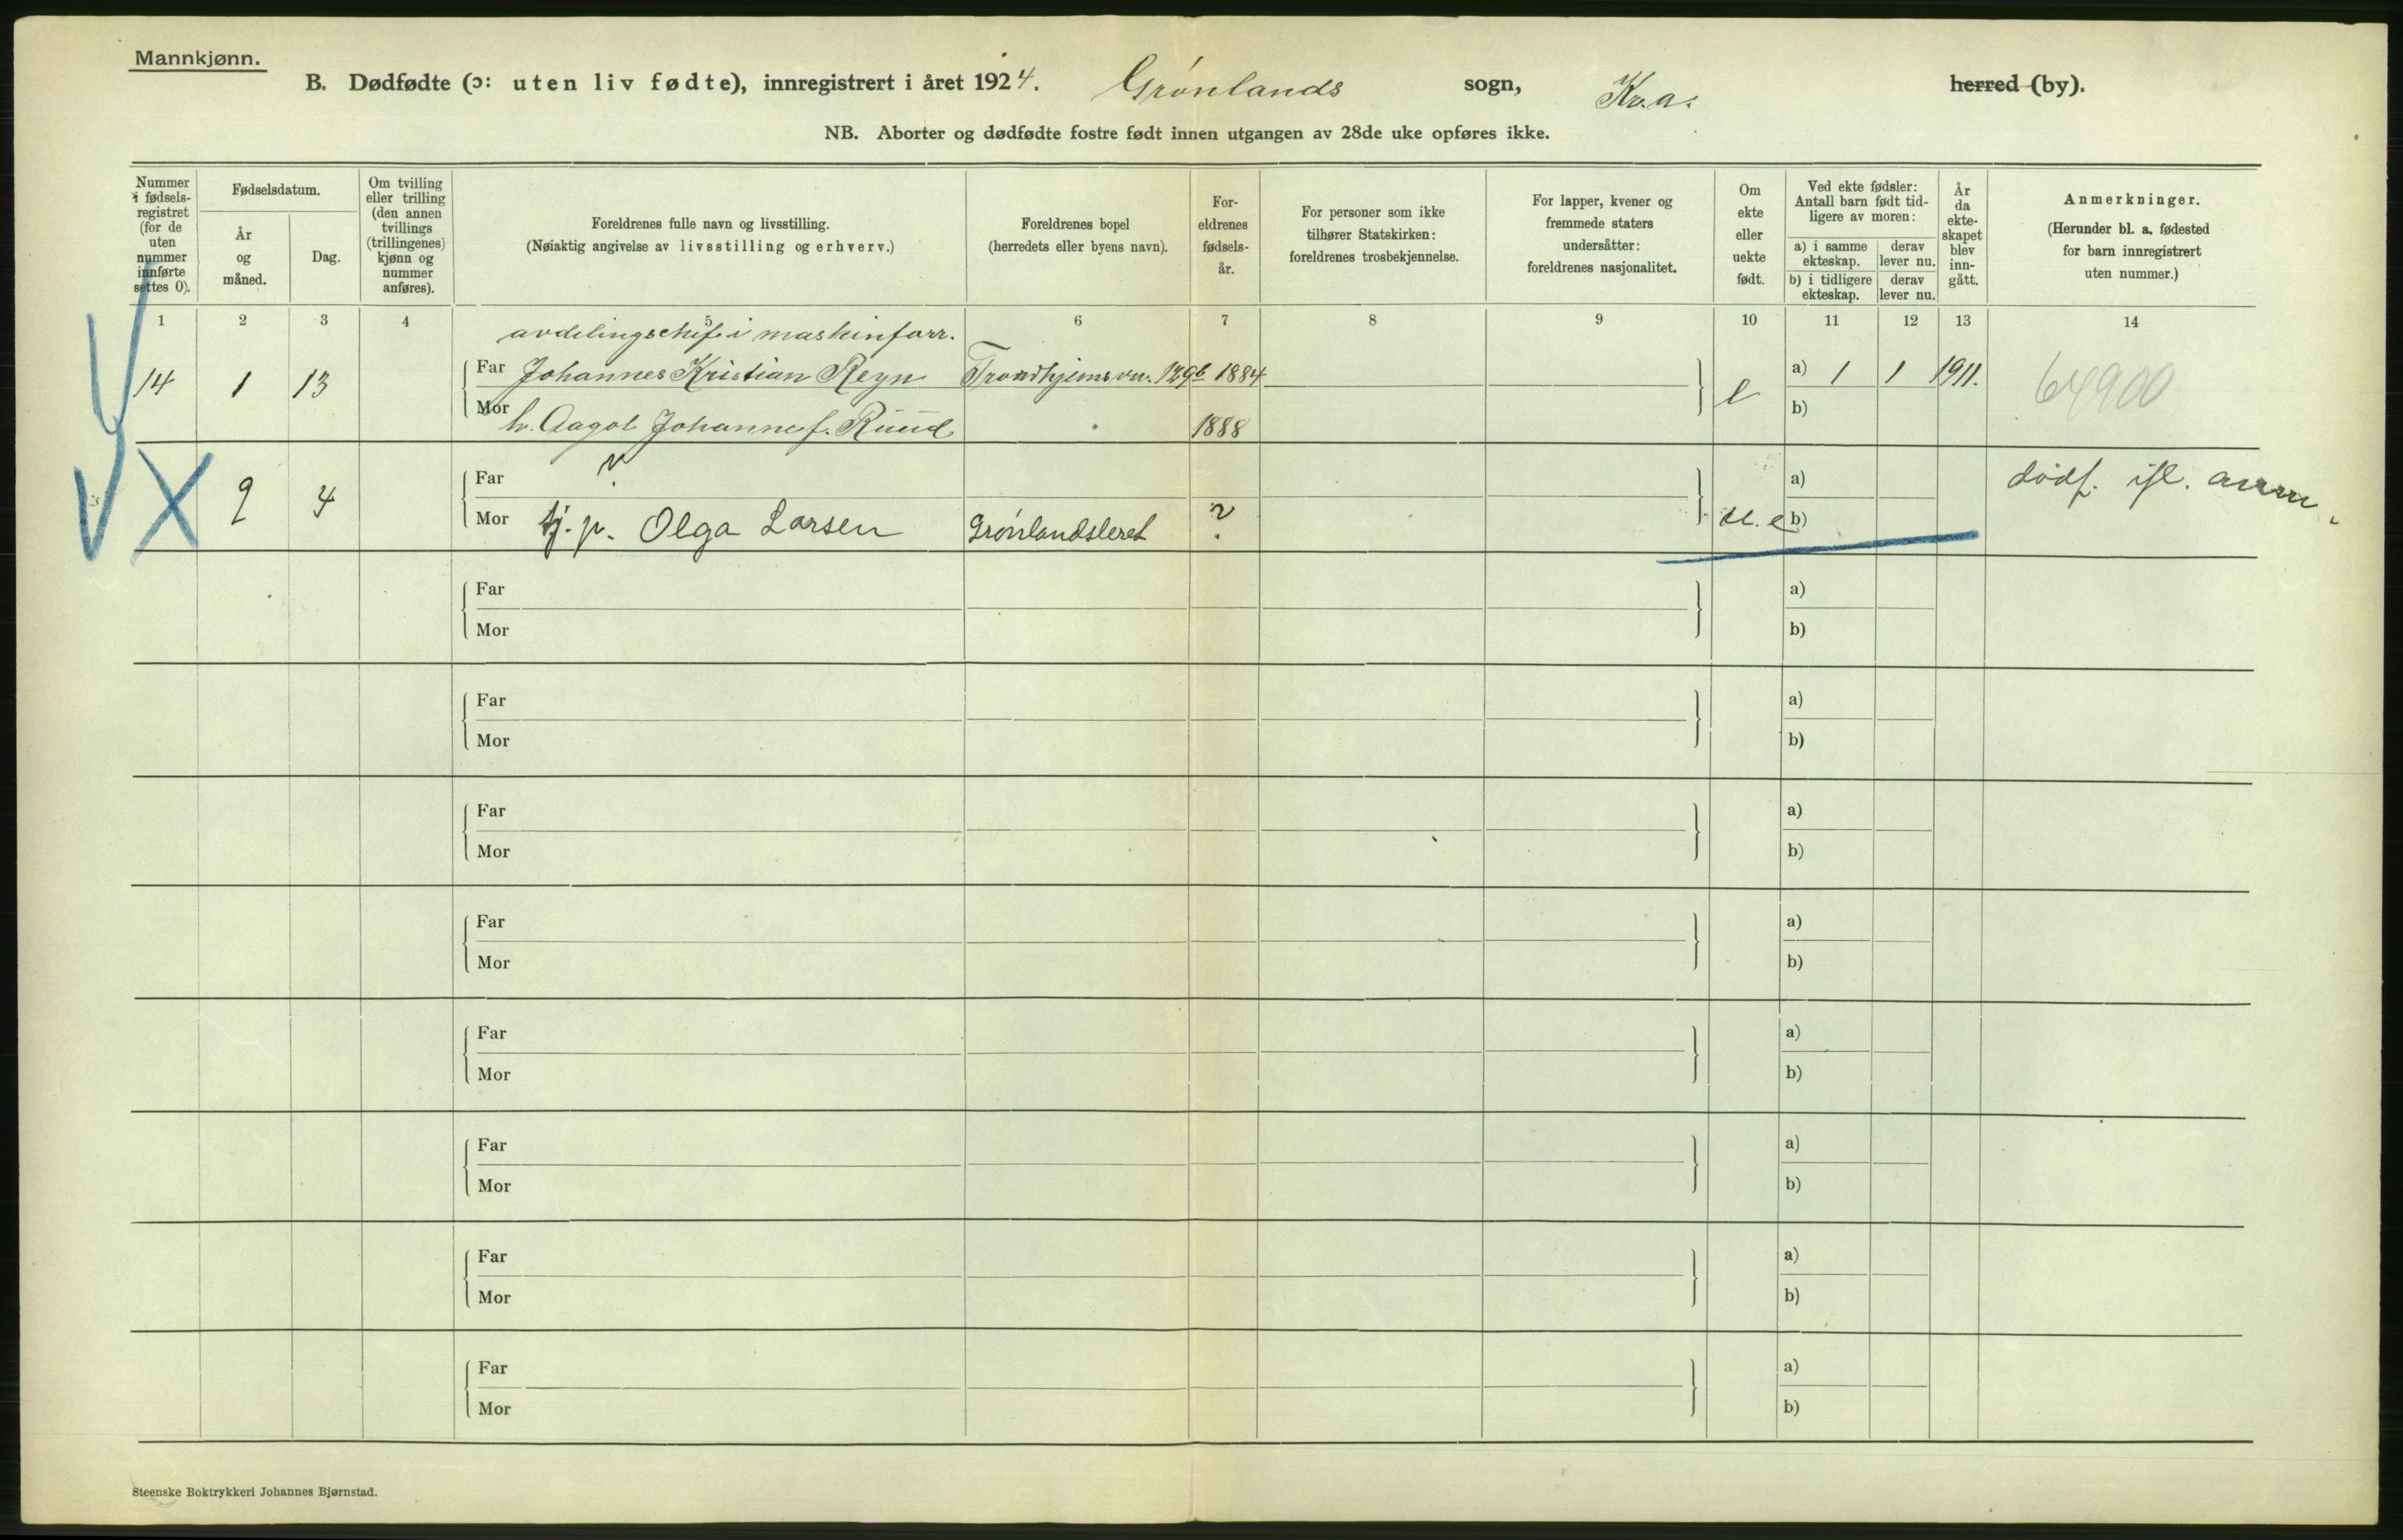 Mannkjønn.
B. Dødfødte (ɔ: uten liv fødte), innregistrert i året 1924. Grønlands sogn, Kr.a. herred (by).
NB. Aborter og dødfødte fostre født innen utgangen av 28de uke opføres ikke.
Nummer i fødsels-registret (for de uten nummer innførte settes 0).
Fødselsdatum.
År og måned.
Dag.
Om tvilling eller trilling (den annen tvillings (trillingenes) kjønn og nummer anføres).
Foreldrenes fulle navn og livsstilling.
(Nøiaktig angivelse av livsstilling og erhverv.)
Foreldrenes bopel
(herredets eller byens navn).
For-eldrenes fødsels-år.
For personer som ikke tilhører Statskirken: foreldrenes trosbekjennelse.
For lapper, kvener og fremmede staters undersåtter: foreldrenes nasjonalitet.
Om ekte eller uekte født.
Ved ekte fødsler: Antall barn født tid-ligere av moren:
a) i samme ekteskap.
derav lever nu.
b) i tidligere ekteskap.
derav lever nu.
År da ekte-skapet blev inn-gått.
Anmerkninger.
(Herunder bl. a. fødested for barn innregistrert uten nummer.)
1 2 3 4 5 6 7 8 9 10 11 12 13 14
avdelingschef i maskinforr.
14 1 13 Far Johannes Kristian Regn Trondhjemsvn. 129b 1884 e a) 1 1 1911. 64900
Mor h. Aagot Johanne f. Ruud 1888 b)
X 2 4 Far ? a) dødf. ifl. anm.
Mor tj.p. Olga Larsen Grønlandsleret ? u.e b)
Far a)
Mor b)
Far a)
Mor b)
Far a)
Mor b)
Far a)
Mor b)
Far a)
Mor b)
Far a)
Mor b)
Far a)
Mor b)
Far a)
Mor b)
Steenske Boktrykkeri Johannes Bjørnstad.